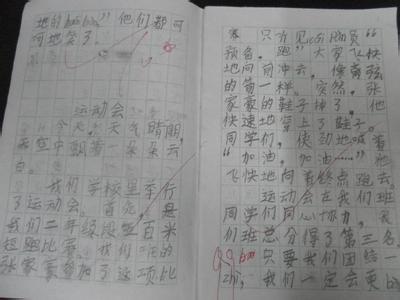 地的bia bia” 他们都呵
呵地笑了。
运动会
今天，天气晴朗，
天空中飘着一朵朵云
白。
我们学校里举行
了运动会。首先是
我们二年级段
百米
短跑比赛。我们班的
张家豪参加了这项比
赛 只听见cái pàn员“
预备，跑”大家飞快
地向前冲去，像离弦
的箭一样。突然，张
家豪的鞋子掉了，他
快速地穿上了鞋子。
同学们，使劲地喊着
“加油，加油……”他
飞快地向着终点跑去。
运动会在我们班
同学们同心协力，我
们班总分得了第三名。
只要我们团结一
zhì，我们一定会更